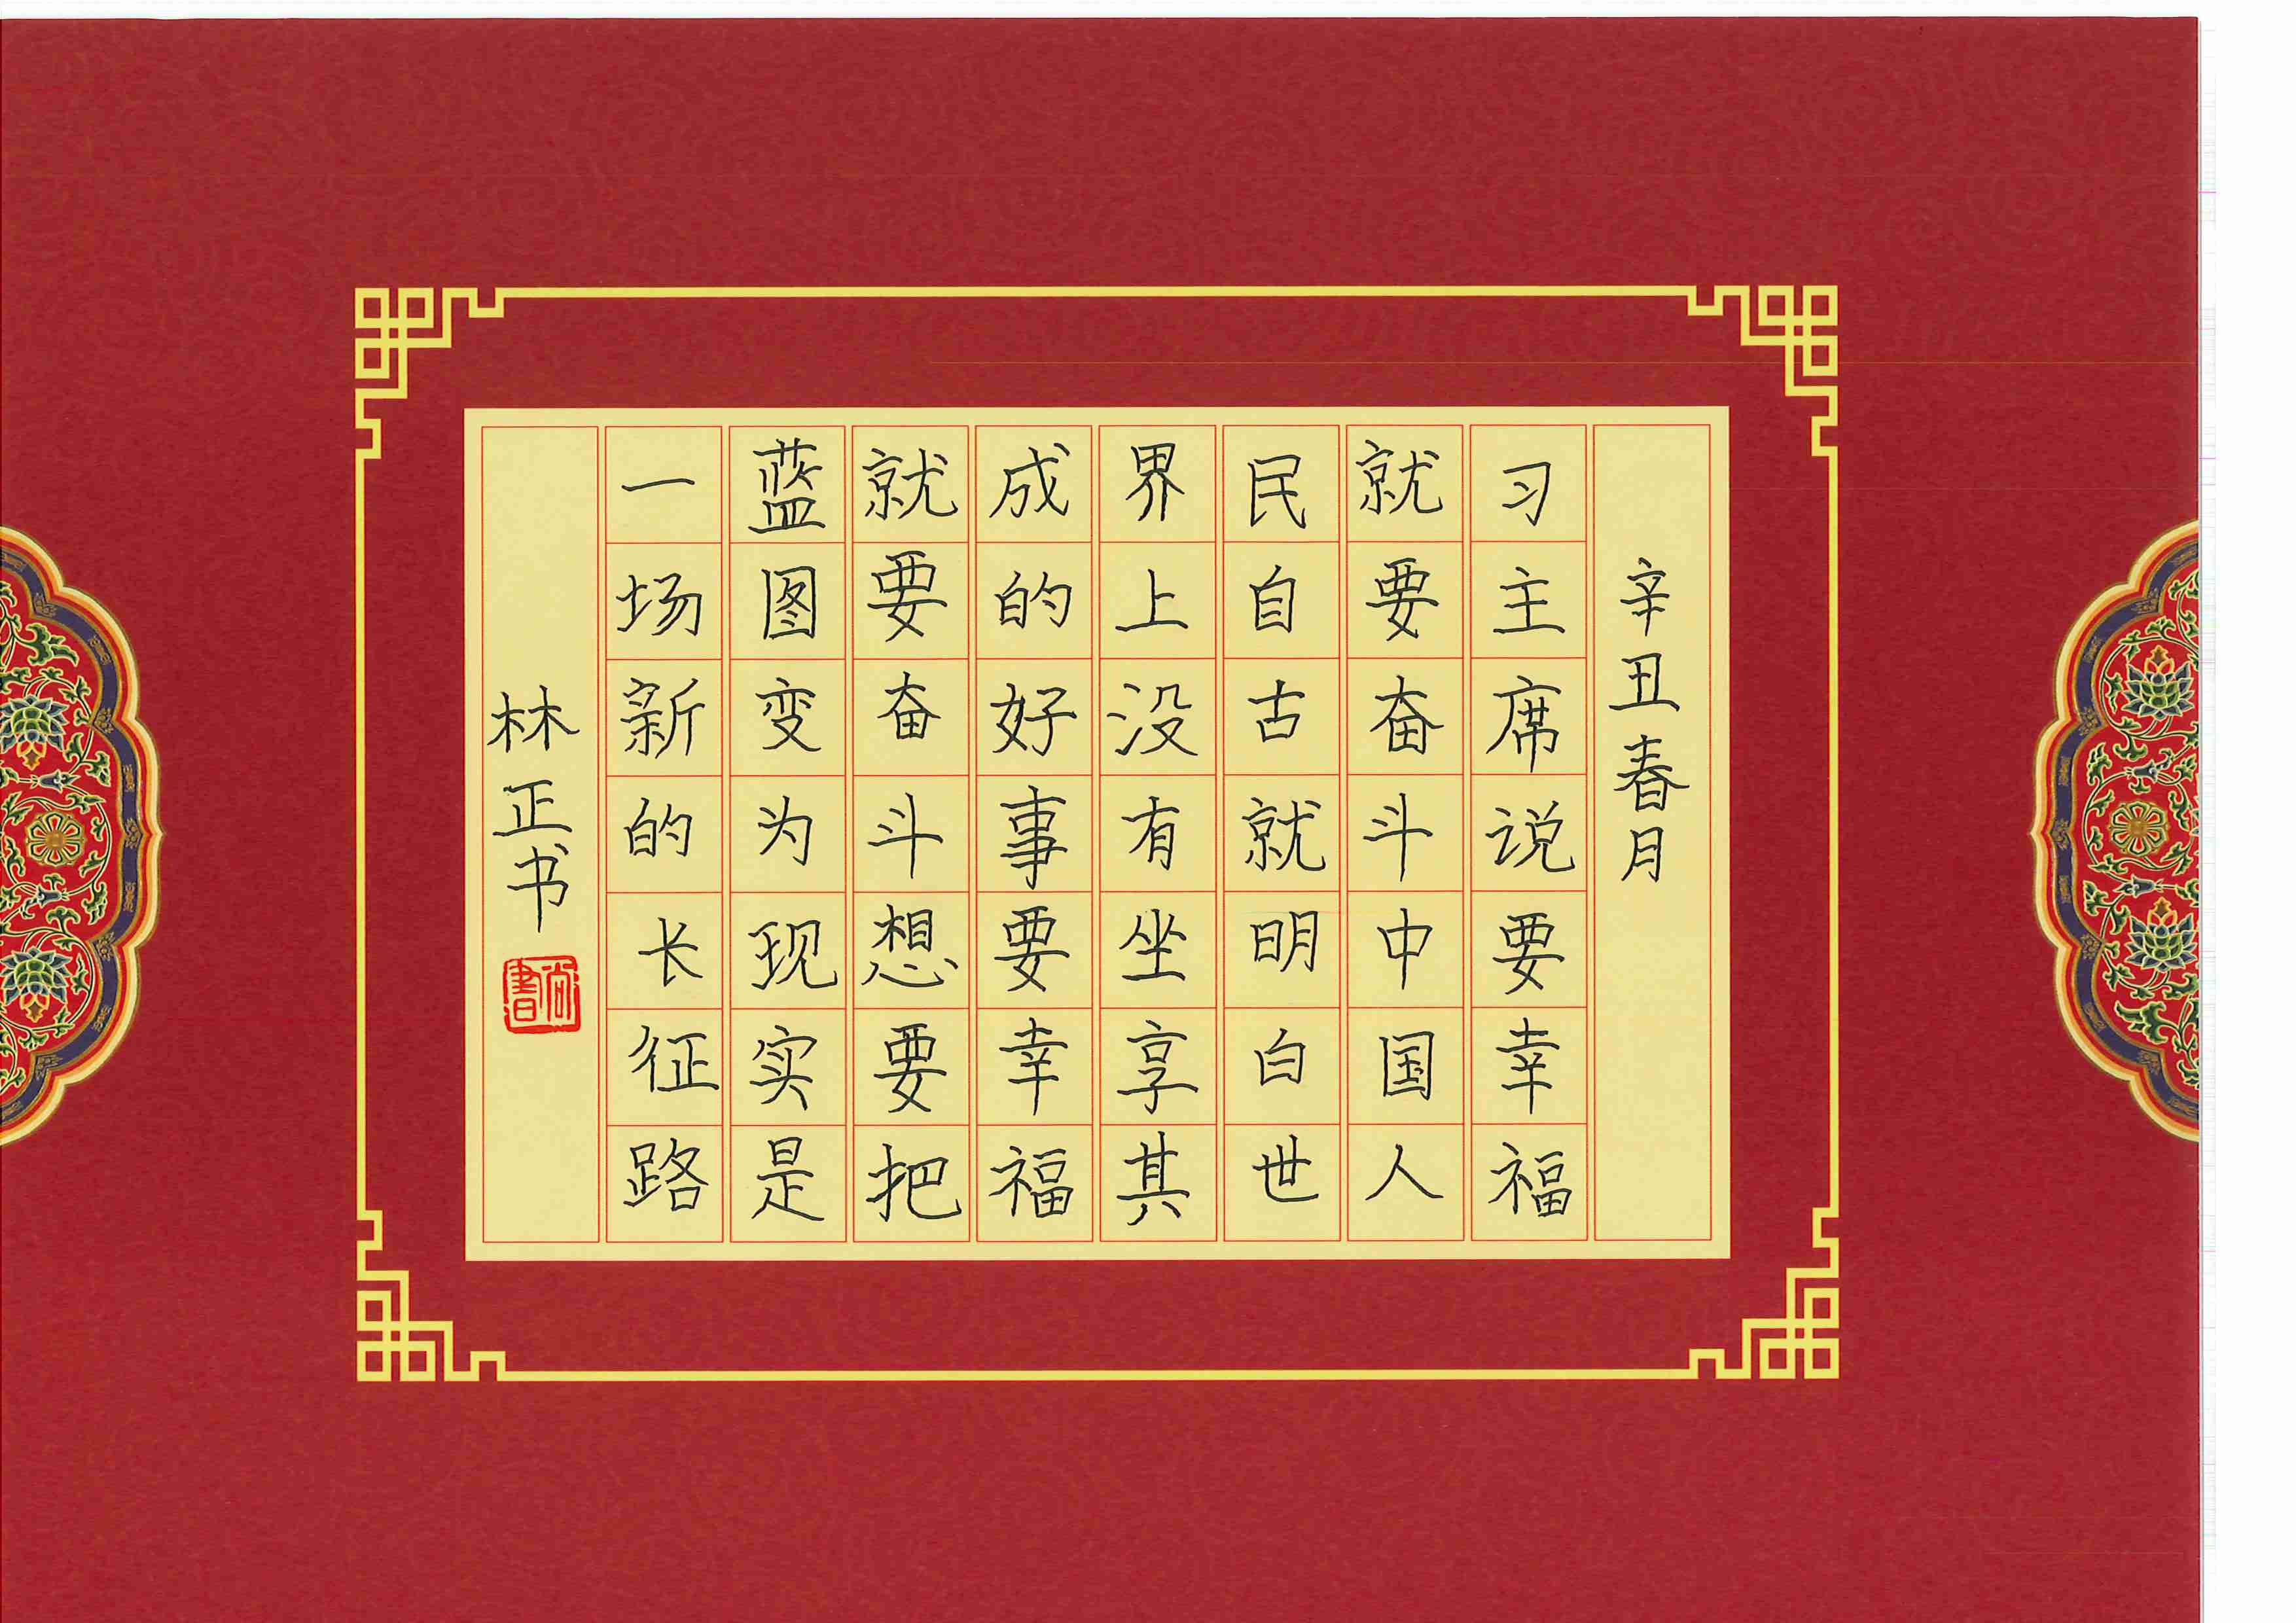 辛丑春月
习主席说要幸福
就要奋斗中国人
民自古就明白世
界上没有坐享其
成的好事要幸福
就要奋斗想要把
蓝图变为现实是
一场新的长征路
林正书